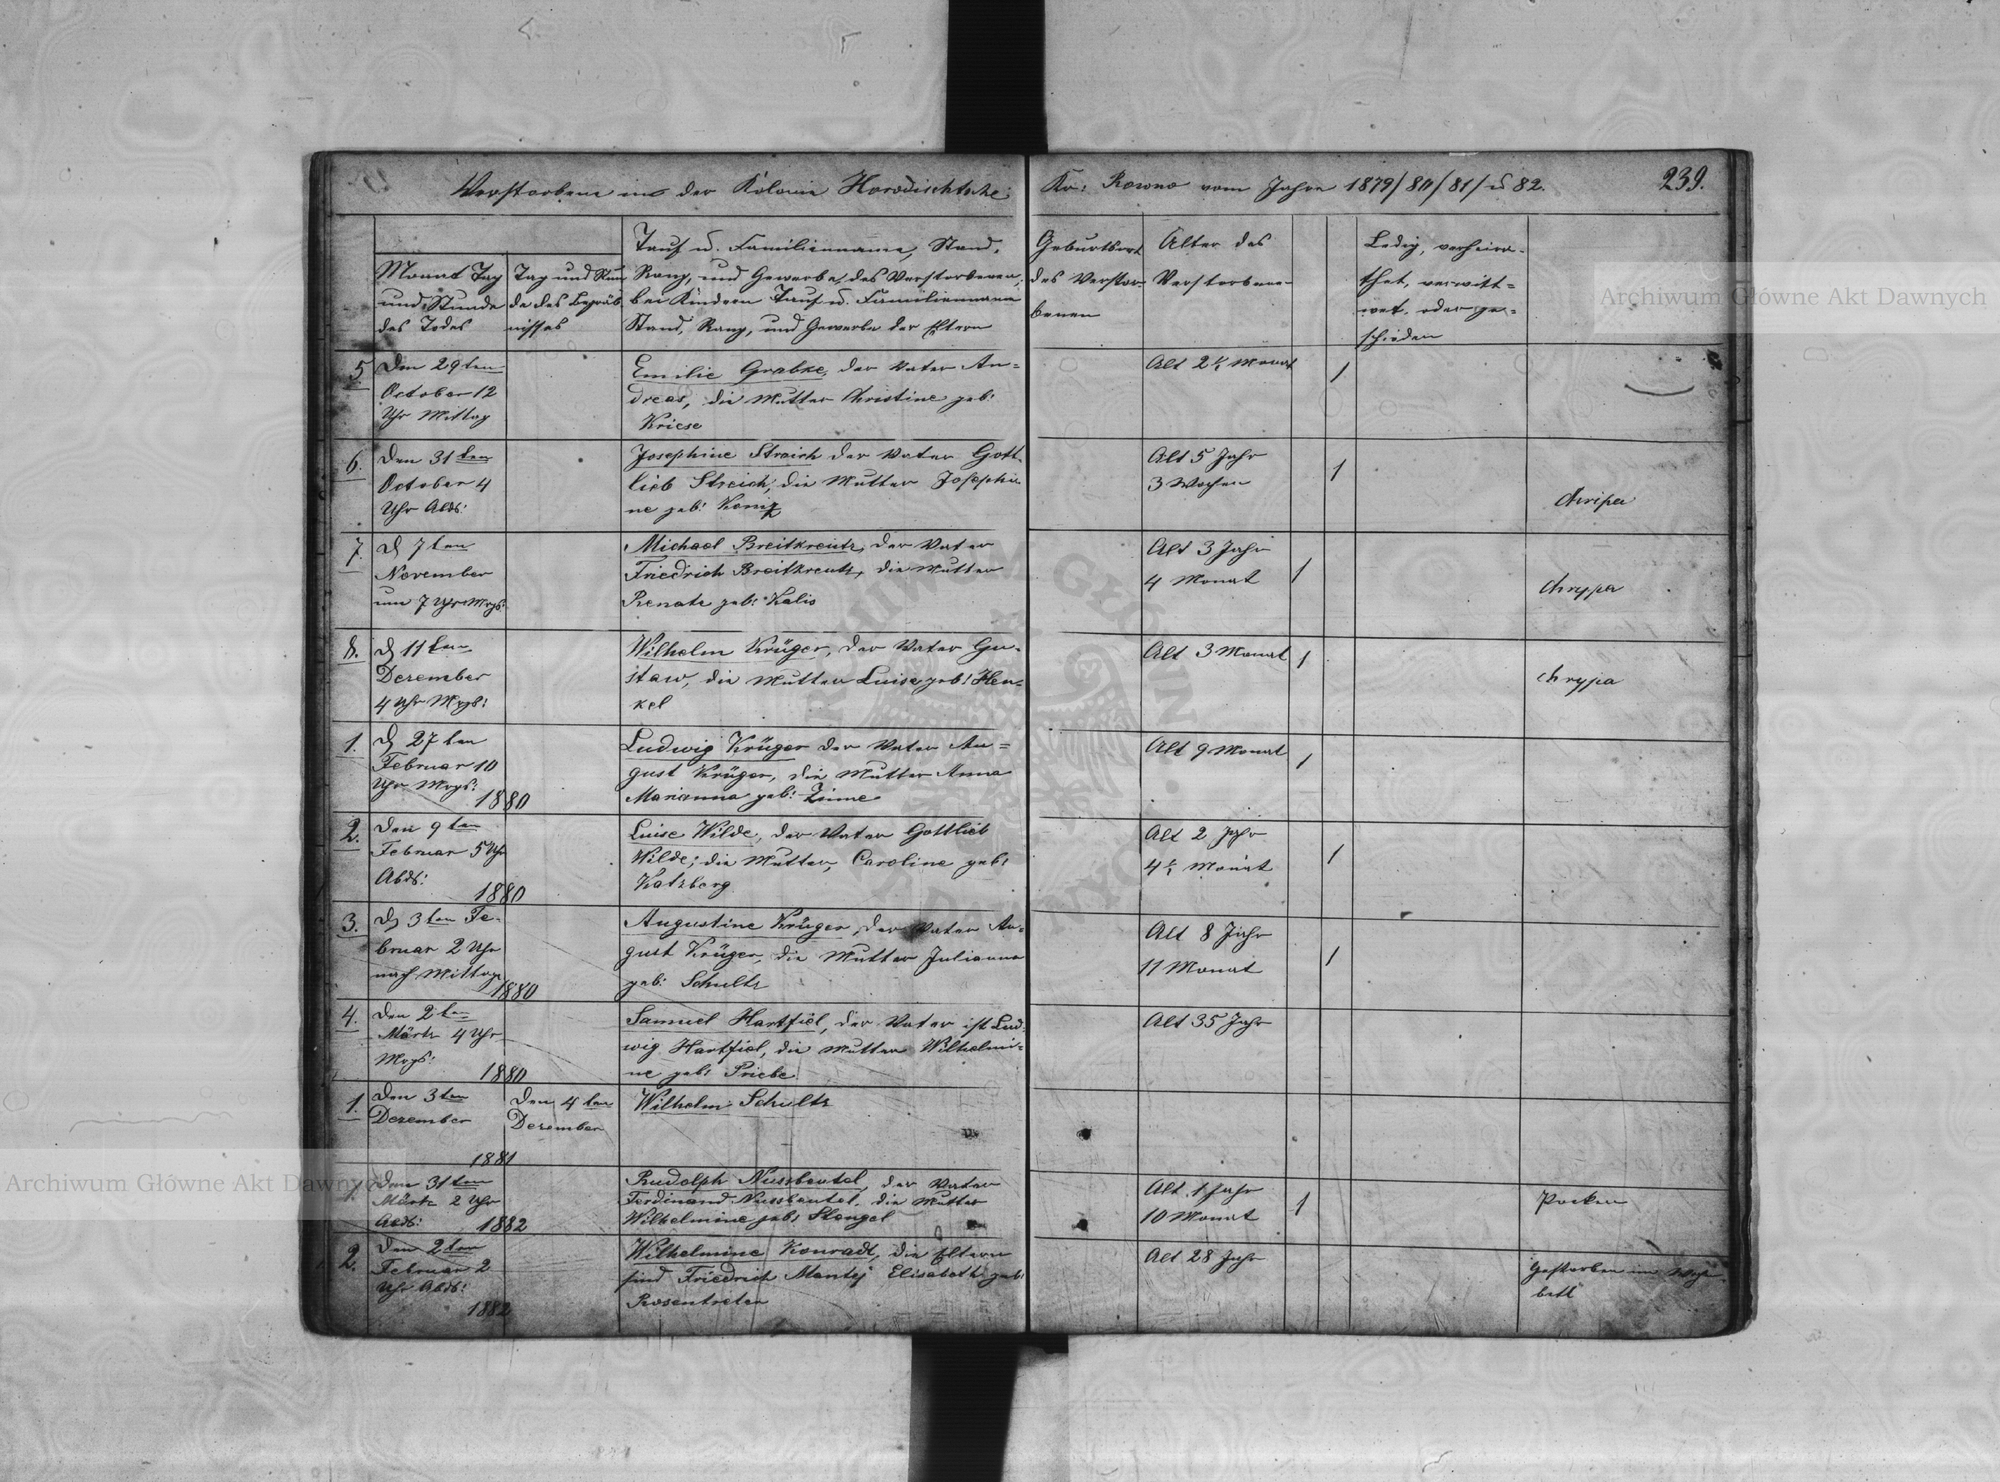 Verstorbene in der Kolonie Horodischtsche
Kr: Rowno vom Jahre 1879/80/81/ u 82.
239.
Monat Tag
und Stunde
des Todes
Tag und Stun
de des Begräb
nisses
Tauf u. Familienname, Stand,
Rang, und Gewerbe, des Verstorbenen,
bei Kindern Tauf u. Familienname
Stand, Rang, und Gewerbe der Eltern
Geburtsort
des Verstor-
benen
Alter des
Verstorbenen
Ledig, verheira-
thet, verwitt=
wet. oder ge=
schieden
5. Den 29ten
October 12
Uhr Mittag
Emilie Grabke, der Vater An=
dreas, die Mutter Christine geb:
Kriese
Alt 2½ Monat
1
6. Den 31ten
October 4
Uhr Abds:
Josephine Streich der Vater Gott-
lieb Streich, die Mutter Josephi-
ne geb:
Alt 5 Jahr
3 Wochen
1
Chripa
7. D 7ten
November
um 7 Uhr Mrgs:
Michael Breitkreutz, der Vater
Friedrich Breitkreutz, die Mutter
Renate geb: Kalis
Alt 3 Jahr
4 Monat
1
Chrypa
8. D 11ten
Dezember
4 Uhr Mrgs:
Wilhelm Krüger, der Vater Gu-
staw, die Mutter Luise geb: Hen=
kel
Alt 3 Monat
1
Chrypa
1. D 27ten
Februar 10
Uhr Mrgs:
1880
Ludwig Krüger der Vater Au=
gust Krüger, die Mutter Anna
Marianna geb: Zinne
Alt 9 Monat
1
2. Den 9ten
Februar 5 Uhr
Abds:
1880
Luise Wilde, der Vater Gottlieb
Wilde; die Mutter, Caroline geb:
Katzberg
Alt 2 Jahr
4½ Monat
1
3. D 3ten Fe-
bruar 2 Uhr
nach Mittag
1880
Augustine Krüger, der Vater Au=
gust Krüger, die Mutter Julianna
geb: Schultz
Alt 8 Jahr
11 Monat
1
4. Den 2ten
Märtz 4 Uhr
Mrgs:
1880
Samuel Hartfiel, der Vater ist Lud-
wig Hartfiel, die Mutter Wilhelmi-
ne geb: Priebe
Alt 35 Jahr
1. Den 3ten
Dezember
1881
Den 4ten
Dezember
Wilhelm Schultz
1. Den 31ten
Märtz 2 Uhr
Abds: 1882
Rudolph Nussbeutel, der Vater
Ferdinand Nussbeutel, die Mutter
Wilhelmine geb: Stengel
Alt 1 Jahr
10 Monat
1
Pocken
2. Den 2ten
Februar 2
Uhr Abds:
1882
Wilhelmine Konradt, die Eltern
sind Friedrich Mantej Elisabeth geb:
Rosentreter
Alt 28 Jahr
Gestorben im
bett
Archiwum Główne Akt Dawnych
Archiwum Główne Akt Dawnych